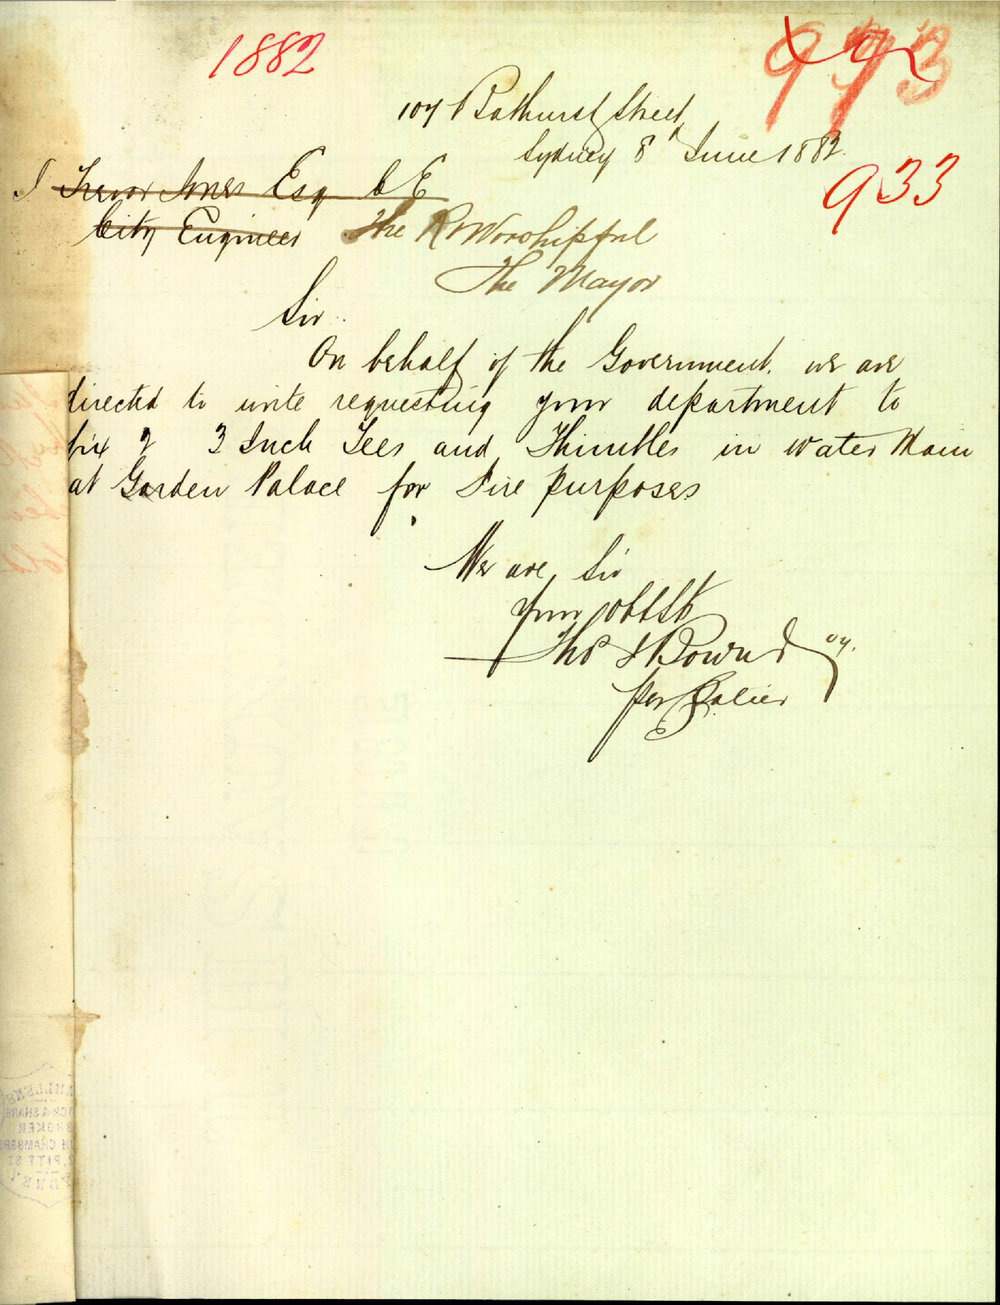 1882
993
933
107 Bathurst Street
Sydney 8th June 1882
J Trevor Jones Esq C E
City Engineer The Rt Worshipful
The Mayor
Sir
On behalf of the Government, we are
directed to write requesting your department to
fix 2 3 Inch Tees and Thimbles in Water Main
at Garden Palace for Fire purposes
We are, Sir
Your obt St
Thos J Bown
per